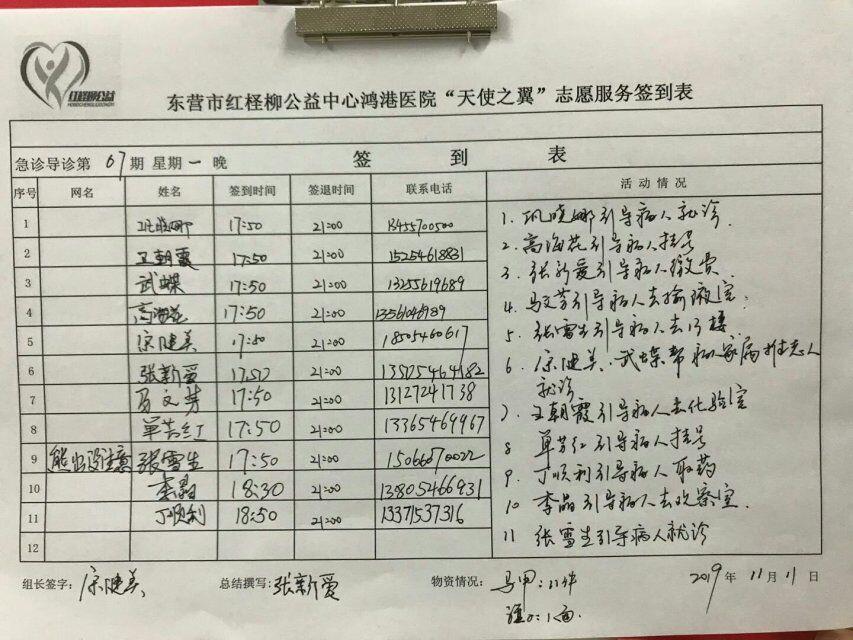 红柽柳公益
东营市红柽柳公益中心鸿港医院“天使之翼”志愿服务签到表
急诊导诊第 67 期 星期 一 晚 签 到 表
序号 网名 姓名 签到时间 签退时间 联系电话 活动情况
1 巩晓娜 17:50 21:00 13455700500
2 王朝霞 17:50 21:00 15254618831
3 武蝶 17:50 21:00 13255619689
4 高海花 17:50 21:00
5 宗健美 17:50 21:00 18505460617
6 张新爱 17:50 21:00
7 马文芳 17:50 21:00 13127241738
8 单芳红 17:50 21:00 13365469967
9 熊出没注意 张雪生 17:50 21:00 15066070022
10 李晶 18:30 21:00 13805466931
11 丁顺利 18:50 21:00 13371537316
12
1. 巩晓娜引导病人就诊.
2. 高海花引导病人挂号
3. 张新爱引导病人缴费
4. 马文芳引导病人去输液室.
5. 张雪生引导病人去13楼.
6. 宗健美、武蝶帮病人
就诊
7. 王朝霞引导病人去化验室
8 单芳红引导病人挂号
9. 丁顺利引导病人取药
10 李晶引导病人去观察室.
11 张雪生引导病人就诊
组长签字: 宗健美 总结撰写: 张新爱 物资情况: 马甲:11件
1面.
2019 年 11 月 11 日